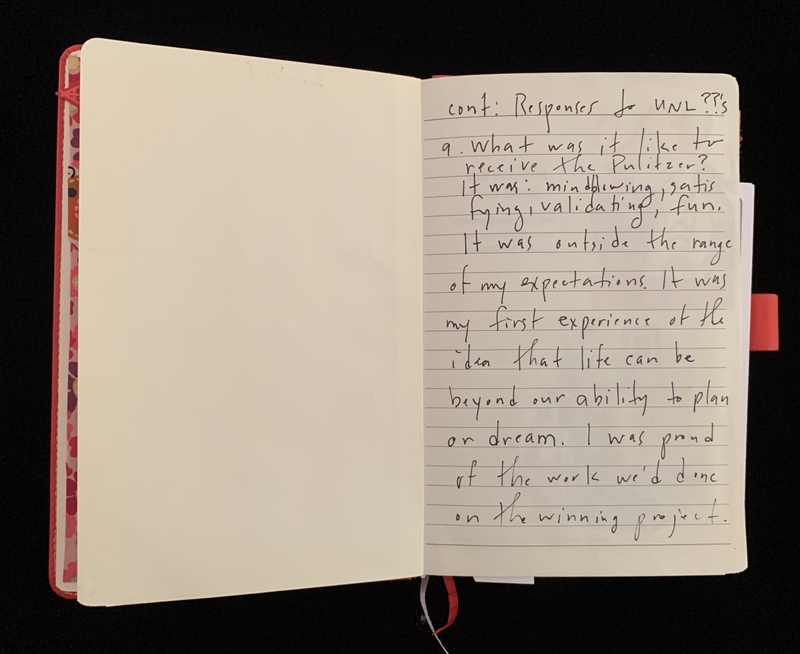 cont: Responses to UNL ??'s
9. What was it like to
receive the Pulitzer?
It was: mindblowing, satis
fying, validating, fun.
It was outside the range
of my expectations. It was
my first experience of the
idea that life can be
beyond our ability to plan
or dream. I was proud
of the work we'd done
on the winning project.